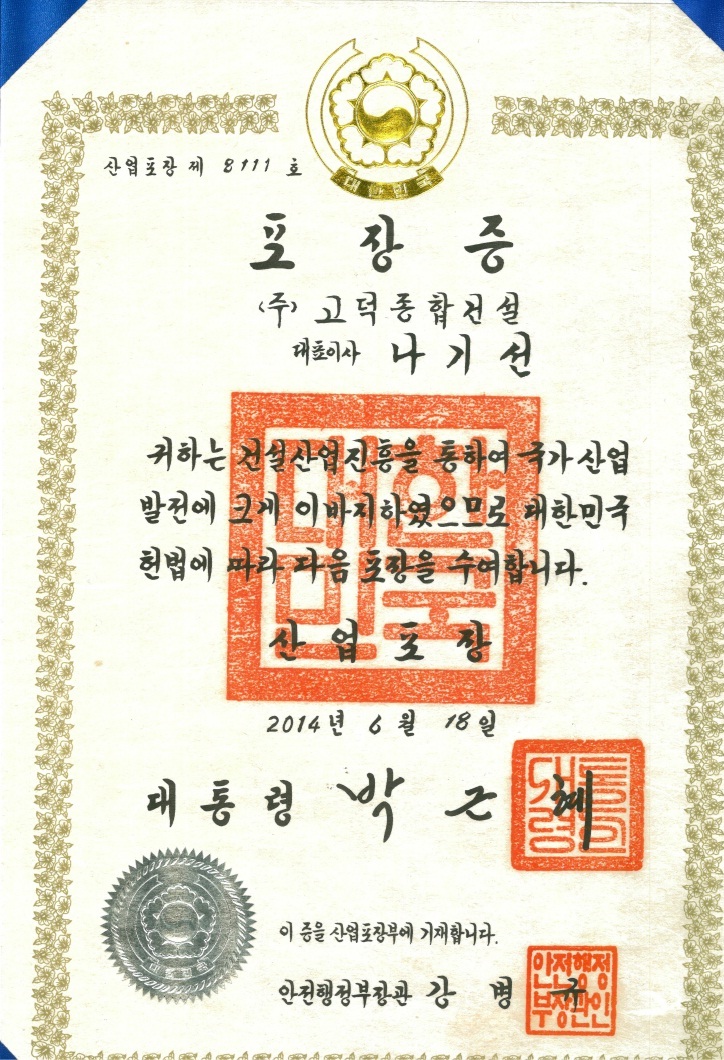 대한민국
산업포장 제 8111 호
포장증
(주) 고덕종합건설
대표이사 나기선
귀하는 건설산업진흥을 통하여 국가산업
발전에 크게 이바지하였으므로 대한민국
헌법에 따라 다음 포장을 수여합니다.
산업포장
2014년 6월 18일
대통령 박근혜
이 증을 산업포장부에 기재합니다.
안전행정부장관 강병규
안전행정
부장관인